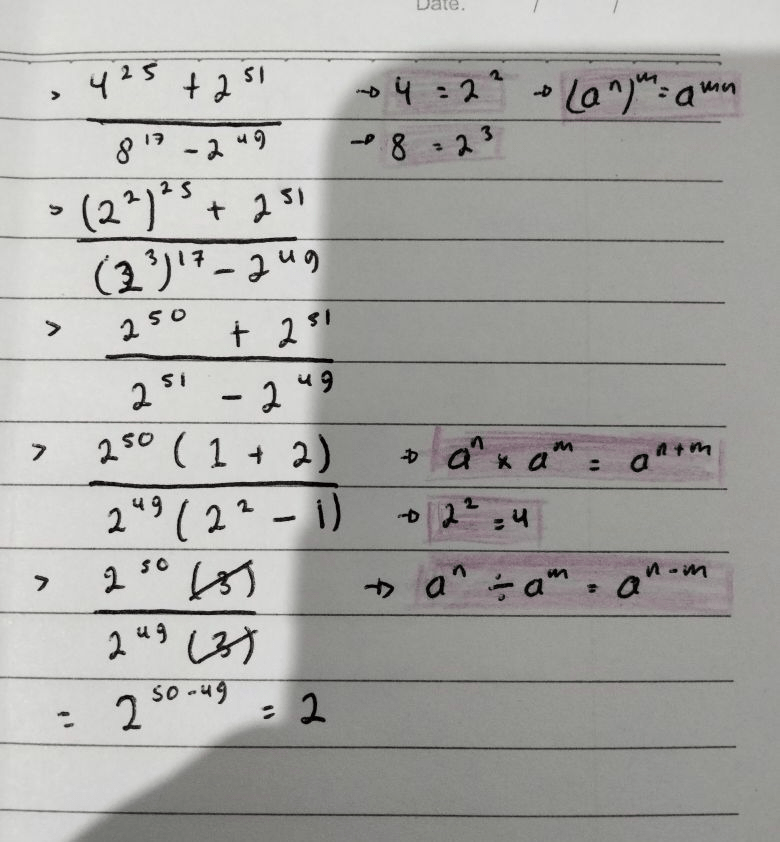 Date. / /
> 4^25 + 2^51 → 4 = 2^2 → (a^n)^m = a^mn
8^17 - 2^49 → 8 = 2^3
> (2^2)^25 + 2^51
(2^3)^17 - 2^49
> 2^50 + 2^51
2^51 - 2^49
> 2^50 (1 + 2) → a^n × a^m = a^n+m
2^49 (2^2 - 1) → 2^2 = 4
> 2^50 (3) → a^n ÷ a^m = a^n-m
2^49 (3)
= 2^50-49 = 2